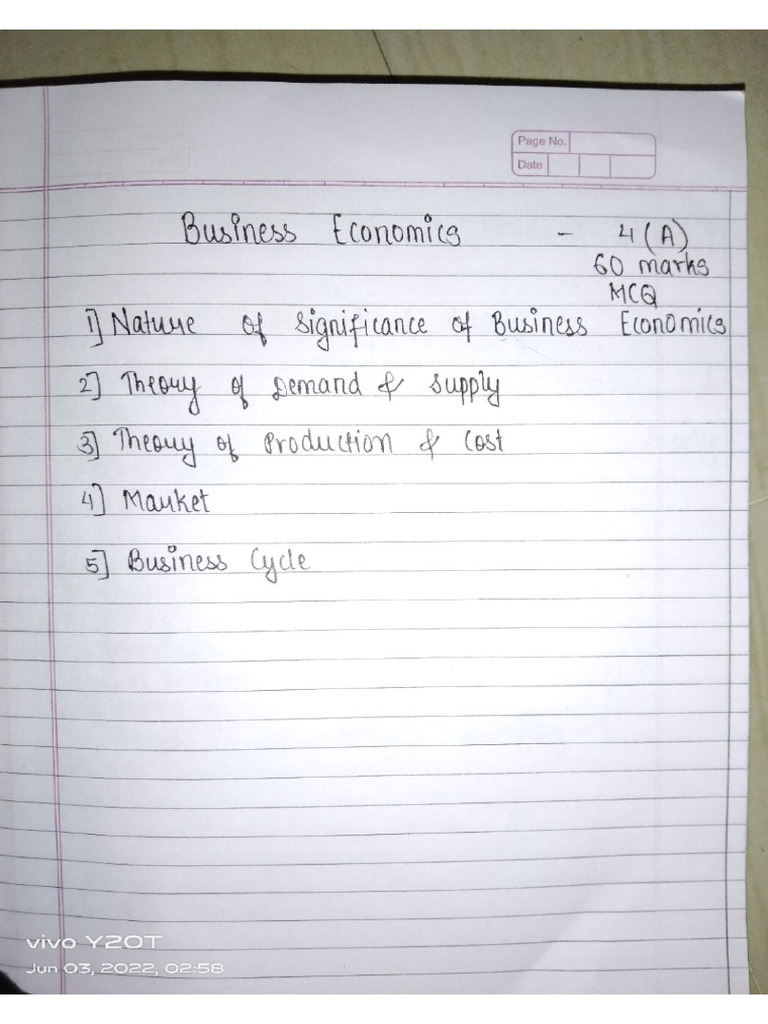 Page No.
Date
Business Economics - 4 (A)
60 marks
MCQ
1] Nature of Significance of Business Economics
2] Theory of Demand & Supply
3] Theory of Production & Cost
4] Market
5] Business Cycle
vivo Y20T
Jun 03, 2022, 02:58